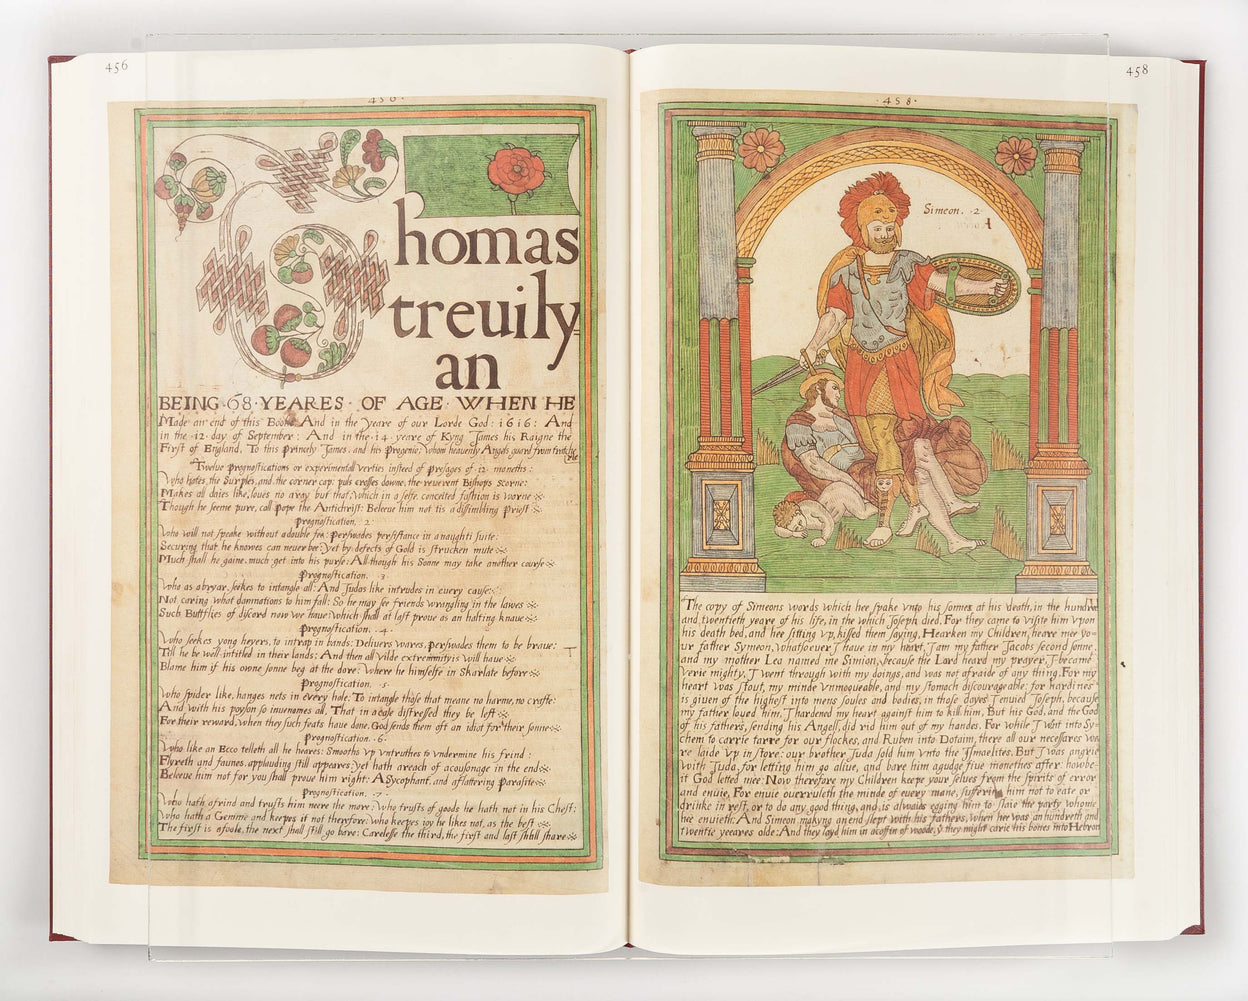 456
456.
Thomas
treuily=
an
BEING·68·YEARES· OF AGE· WHEN HE
Made an end of this Booke And in the yeare of our Lorde God: 1616: And
in the ·12· day of September: And in the ·14· yeare of Kyng James his Raigne the
First of England, To this Princely James, and his progenie, Whom heavenly Angels guard from
Twelue prognostications or experimentall verties insteed of presages of 12 moneths:
Who hates the Surples, and the corner cap: puls crosses downe, the reverent Bishops scorne:
Makes all daies like, loues no aray but that which in a selfe conceited fashion is worne
Though he seeme pure, call pope the Antichrist: Beleeue him not tis a dissimbling priest
prognostication. 2
Who will not speake without a double fea: perswades persistance in a naughti suite:
Securing that he knowes can neuer bee: yet by defects of Gold is strucken mute
Much shall he gaine, much get into his purse: Although his Sonne may take another course
Prognostication. 3.
Who as a bryar, seekes to intangle all: And Judas like intrudes in euery cause:
Not caring what damnations to him fall: So he may see friends wrangling in the lawes
Such Buttflies of discord now we haue which shall at last prove as an halting knaue
Prognostication. ·4·
Who seekes yong heyers, to intrap in bands: Delivers wares, perswades them to be braue:
Till he be well intitled in their lands: And then all vilde extremmity is will haue
Blame him if his owne sonne beg at the dore: Where he himselfe in Skarlate before
Prognostication. ·5·
Who spider like, hanges nets in every hole: To intangle those that meane no harme, no crafte:
And with his poyson so invenomes all, That in a cage distressed they be left
For their reward, when they such feats have done, God sends them oft an idiot for their sonne
Prognostication. ·6·
Who like an Ecco telleth all he heares: Smooths vp vntruthes to vndermine his frind:
Flyreth and faunes, applauding still appeares: yet hath a reach of acousonage in the end
Beleeue him not for you shall proue him right: A Sycophant, and a flattering Parasite
Prognostication. ·7·
Who hath a frind and trusts him nere the more: Who trusts of goods he hath not in his Chest:
Who hath a Gemme and keepes it not therfore: who keepes ioy he likes not, as the best
The first is a foole, the next shall still go bare: Carelesse the third, the first and last shall share
458
·458·
Simeon. ·2
The copy of Simeons words which hee spake vnto his sonnes at his death, in the hundre
and twentieth yeare of his life, in the which Joseph died. For they came to visite him vpon
his death bed, and hee sitting vp, kissed them saying. Hearken my Children, heare mee yo=
ur father Symeon, whatsoever I have in my heart, I am my father Jacobs second sonne,
and my mother Lea named me Simion, because the Lord heard my prayer, I became
verie mighty, I went through with my doings, and was not afraide of any thing. For my
heart was stout, my minde vnmoqueable, and my stomach discourageable: for hardines
is giuen of the highest into mens soules and bodies, in those dayes I enuied Joseph, because
my father loued him, I hardened my heart against him to kill him. But his God, and the God
of his fathers, sending his Angell, did rid him out of my handes. For while I went into Sy=
chem to carrie tarre for our flockes, and Ruben into Dotaim, there all our necessares we
re laide vp in store: our brother Juda sold him vnto the Ismaelites. But I was angrie
with Juda, for letting him go aliue, and bare him agudge fiue monethes after: howbe=
it God letted mee: Now therefore my Children keepe your selues from the spirits of error
and enuie, For enuie overruleth the minde of every mane, suffering him not to eate or
drinke in rest, or to do any good thing, and is alwaies egging him to slaie the party whome
hee enuieth: And Simeon makyng an end slept with his fathers, when hee was an hundreth and
twentie yeeares olde: And they layd him in a coffin of woode, y they might carie his bones into Hebron